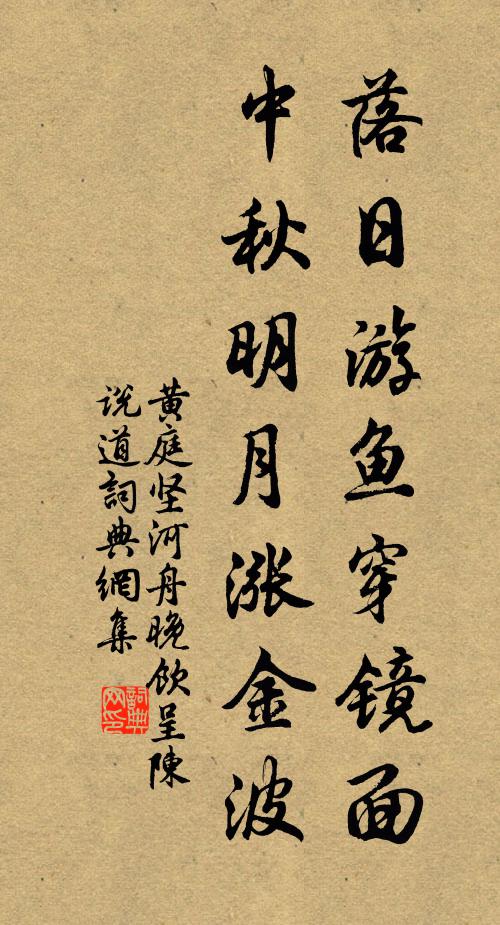 落日游鱼穿镜面
中秋明月涨金波
黄庭坚河舟晚饮呈陳
说道詞典網集
詞典网印